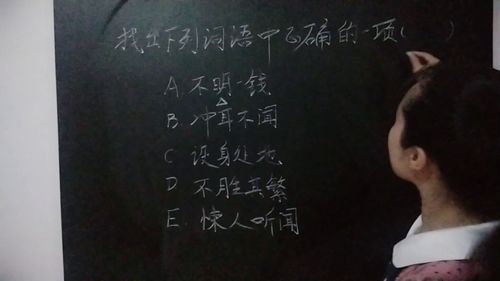 找出下列词语中正确的一项( )
A.不明一钱
B.冲耳不闻
C 设身处地
D 不胜其繁
E.悚人听闻